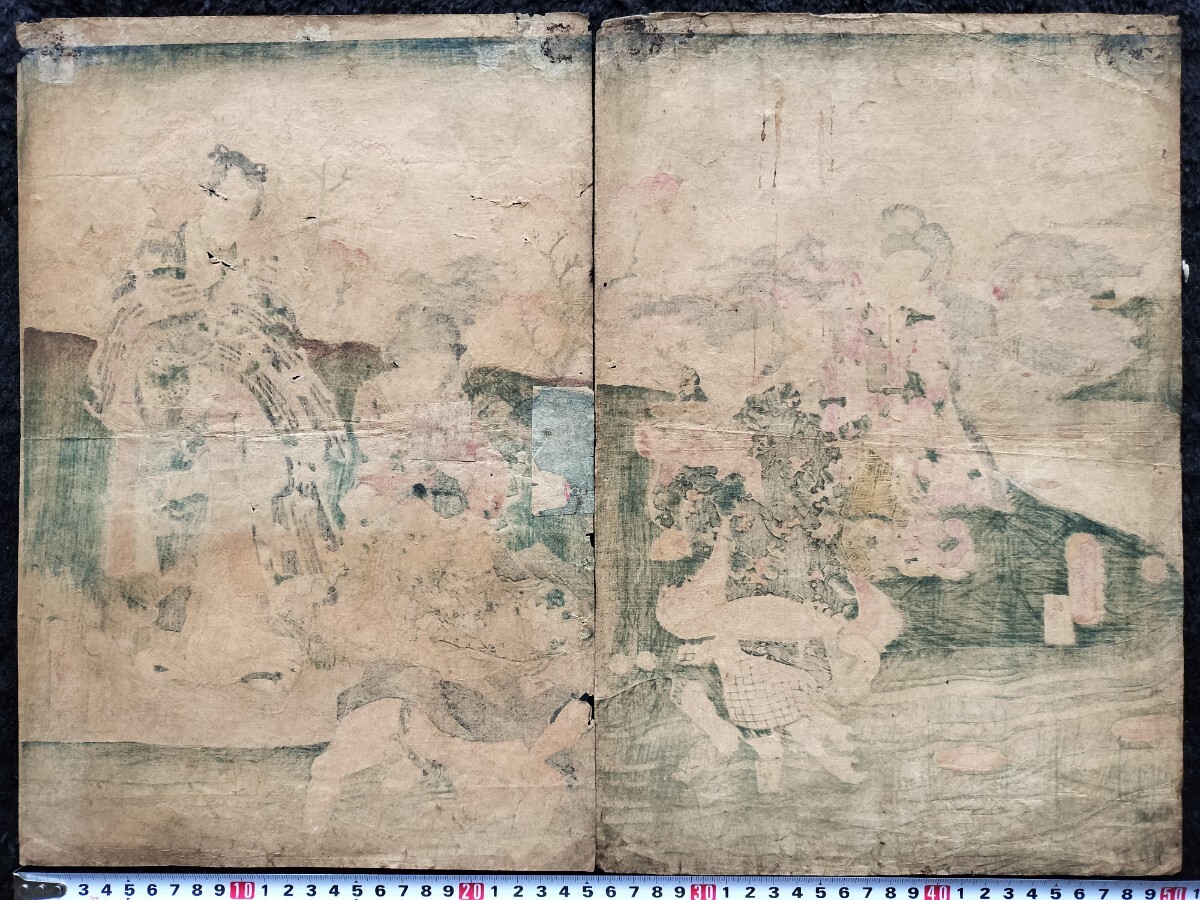 3 4 5 6 7 8 9 10 1 2 3 4 5 6 7 8 9 20 1 2 3 4 5 6 7 8 9 30 1 2 3 4 5 6 7 8 9 40 1 2 3 4 5 6 7 8 9 50 1